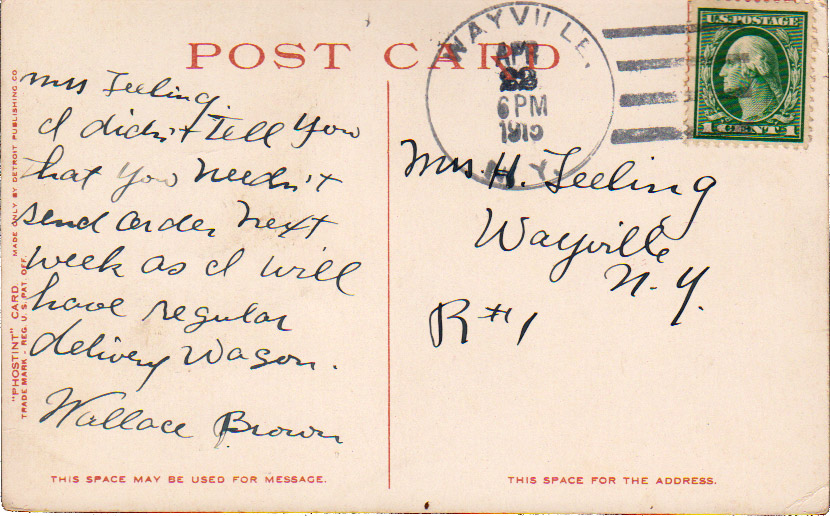 POST CARD
WAYVILLE,
APR
23
6 PM
1915
N.Y.
U.S. POSTAGE
1 CENT 1
Mrs Feeling.
I didn't Tell You
that You needn't
send order next
week as I will
have regular
delivery Wagon.
Wallace Brown
Mrs. H. Feeling
Wayville
N.Y.
R#1
"PHOSTINT" CARD. MADE ONLY BY DETROIT PUBLISHING CO
TRADE MARK - REG. U.S. PAT. OFF.
THIS SPACE MAY BE USED FOR MESSAGE.
THIS SPACE FOR THE ADDRESS.